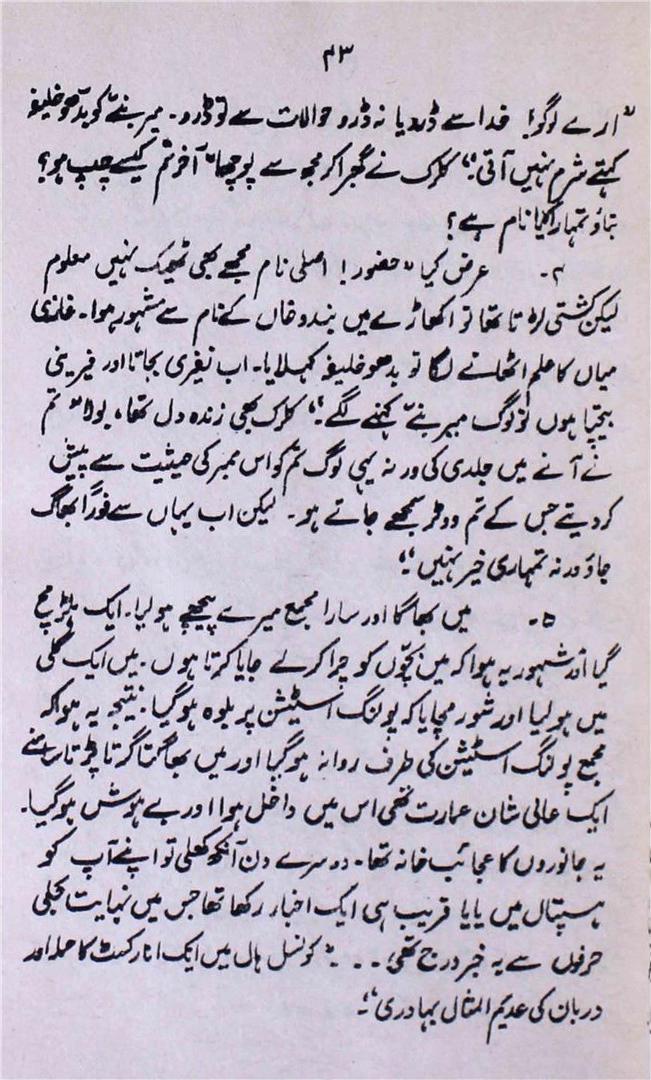 ۴۳
"ارے لوگو! خدا سے ڈرو یا نہ ڈرو حوالات سے تو ڈرو۔ میر بنّے کو بدّھو خلیفہ
کہتے شرم نہیں آتی؟" کلرک نے گھبرا کر مجھ سے پوچھا "آخر تم کیسے چپ ہو؟
بتاؤ تمہارا کیا نام ہے؟
۴۔ عرض کیا "حضور! اصلی نام مجھے بھی ٹھیک نہیں معلوم
لیکن کشتی لڑتا تھا تو اکھاڑے میں بندو خاں کے نام سے مشہور ہوا۔ غازی
میاں کا علم اٹھانے لگا تو بدھو خلیفہ کہلایا۔ اب نفیری بجاتا اور فیرینی
بیچتا ہوں تو لوگ میر بنّے کہنے لگے۔" کلرک بھی زندہ دل تھا، بولا "تم
نے آنے میں جلدی کی ورنہ یہی لوگ تم کو اس ممبر کی حیثیت سے پیش
کر دیتے جس کے تم ووٹر سمجھے جاتے ہو۔ لیکن اب یہاں سے فوراً بھاگ
جاؤ ورنہ تمہاری خیر نہیں"
۵۔ میں بھاگا اور سارا مجمع میرے پیچھے ہو لیا۔ ایک ہلڑ مچ
گیا اور مشہور یہ ہوا کہ میں بچّوں کو چرا کر لے جایا کرتا ہوں۔ میں ایک گلی
میں ہو لیا اور شور مچایا کہ پولنگ اسٹیشن پر بلوہ ہو گیا۔ نتیجہ یہ ہوا کہ
مجمع پولنگ اسٹیشن کی طرف روانہ ہو گیا اور میں بھاگتا گرتا پڑتا سامنے
ایک عالی شان عمارت تھی اس میں داخل ہوا اور بے ہوش ہو گیا۔
یہ جانوروں کا عجائب خانہ تھا۔ دوسرے دن آنکھ کھلی تو اپنے آپ کو
ہسپتال میں پایا قریب ہی ایک اخبار رکھا تھا جس میں نہایت جلی
حرفوں سے یہ خبر درج تھی۔۔۔ "کونسل ہال میں ایک انارکسٹ کا حملہ اور
دربان کی عدیم المثال بہادری"۔